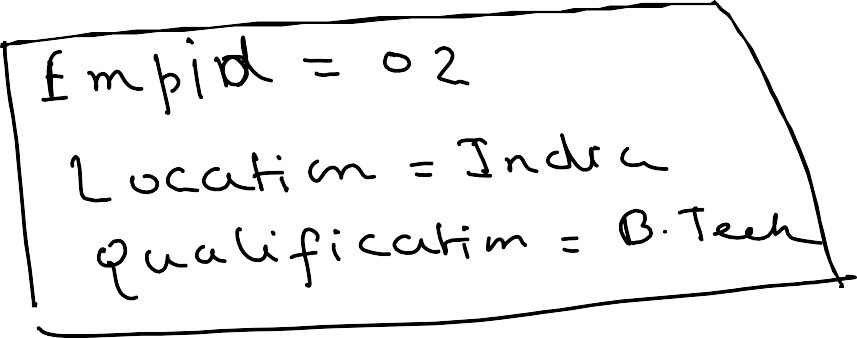 Empid = 02
Location = India
Qualification = B.Tech